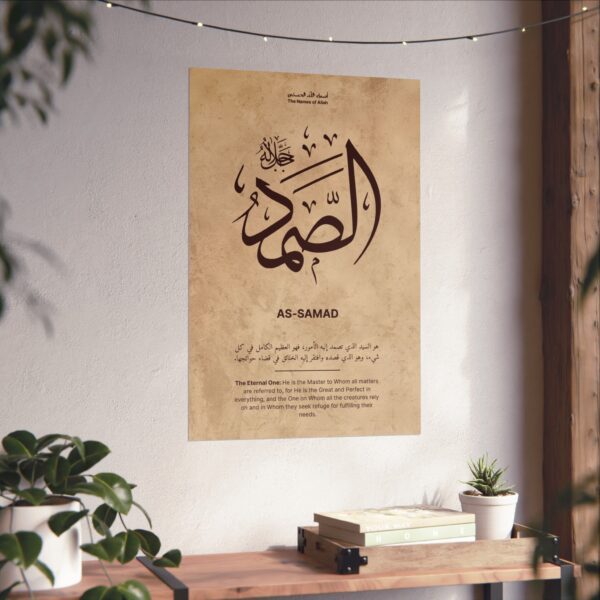 أسماء الله الحسنى
The Names of Allah
جل جلاله
الصمد
AS-SAMAD
هو السيد الذي تصمد إليه الأمور، فهو العظيم الكامل في كل
شيء، وهو الذي قصده وافتقر إليه الخلائق في قضاء حوائجها.
The Eternal One: He is the Master to Whom all matters
are referred to, for He is the Great and Perfect in
everything, and the One on Whom all the creatures rely
on and in Whom they seek refuge for fulfilling their
needs.